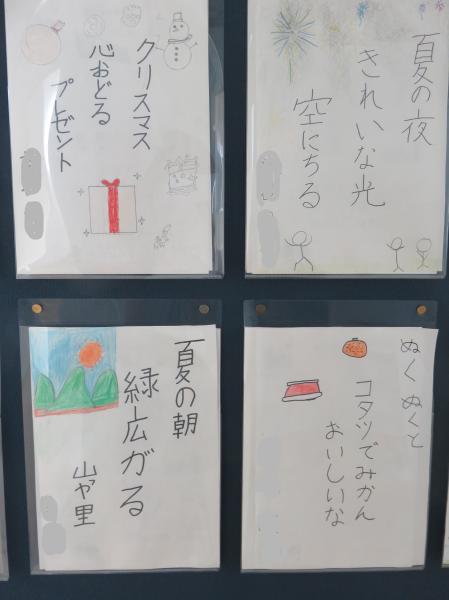 クリスマス
心おどる
プレゼント
夏の夜
きれいな光
空にちる
夏の朝
緑広がる
山や里
ぬくぬくと
コタツでみかん
おいしいな